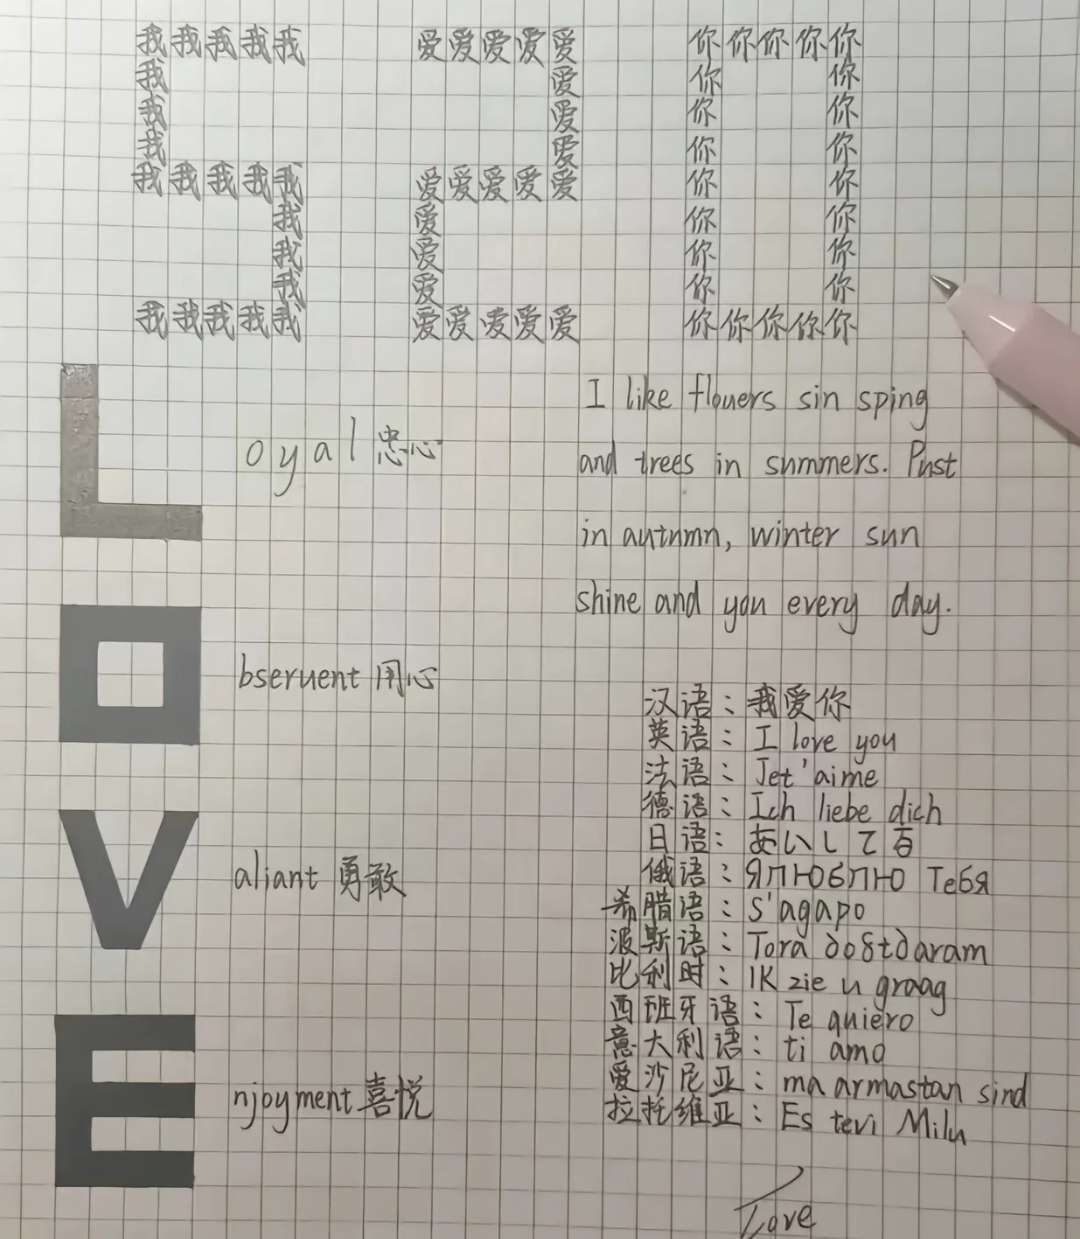 我我我我我 爱爱爱爱爱 你你你你你
我 爱 你 你
我 爱 你 你
我 爱 你 你
我我我我我 爱爱爱爱爱 你 你
我 爱 你 你
我 爱 你 你
我 爱 你 你
我我我我我 爱爱爱爱爱 你你你你你
L oyal 忠心
O bseruent 用心
V aliant 勇敢
E njoyment 喜悦
I like flouers sin sping
and trees in summers. Pust
in autnmn, winter sun
shine and you every day.
汉语：我爱你
英语：I love you
法语：Jet'aime
德语：Ich liebe dich
日语：あいして百
俄语：ЯПЮбПЮ Тебя
希腊语：S'agapo
波斯语：Tora dostdaram
比利时：IK zie u graag
西班牙语：Te quiero
意大利语：ti amo
爱沙尼亚：ma armastan sind
拉托维亚：Es tevi Milu
Love